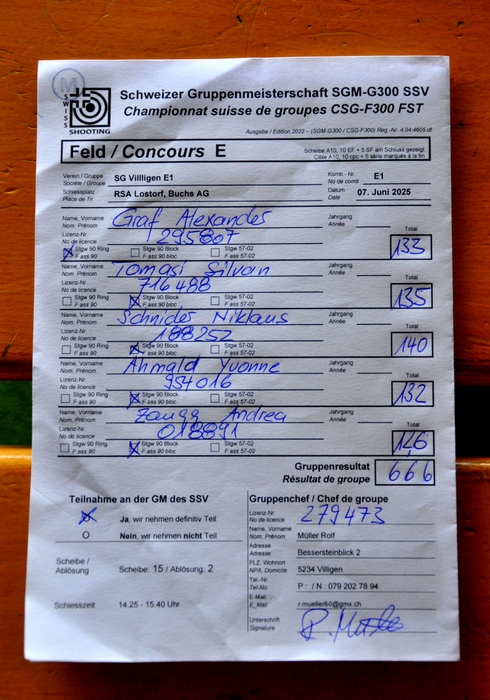 M
SWISS
SHOOTING
Schweizer Gruppenmeisterschaft SGM-G300 SSV
Championnat suisse de groupes CSG-F300 FST
Ausgabe / Edition 2022 – (SGM-G300 / CSG-F300) Reg.-Nr. 4.04.4605 df
Feld / Concours E
Scheibe A10, 10 EF + 5 SF am Schluss gezeigt
Cible A10, 10 cpc + 5 série marqués à la fin
Verein / Gruppe SG Villigen E1 Komb.-Nr. E1
Société / Groupe No de comb
Schiessplatz RSA Lostorf, Buchs AG Datum 07. Juni 2025
Place de Tir Date
Name, Vorname Graf Alexander Jahrgang
Nom, Prénom Année
Lizenz-Nr. 295807 Total
No de licence
X Stgw 90 Ring Stgw 90 Block Stgw 57-02 133
F ass 90 F ass 90 bloc F ass 57-02
Name, Vorname Tomasi Silvan Jahrgang
Nom, Prénom Année
Lizenz-Nr. 716488 Total
No de licence
Stgw 90 Ring X Stgw 90 Block Stgw 57-02 135
F ass 90 F ass 90 bloc F ass 57-02
Name, Vorname Schnider Niklaus Jahrgang
Nom, Prénom Année
Lizenz-Nr. 188252 Total
No de licence
Stgw 90 Ring X Stgw 90 Block Stgw 57-02 140
F ass 90 F ass 90 bloc F ass 57-02
Name, Vorname Yvonne Jahrgang
Nom, Prénom Année
Lizenz-Nr. 954016 Total
No de licence
Stgw 90 Ring X Stgw 90 Block Stgw 57-02 132
F ass 90 F ass 90 bloc F ass 57-02
Name, Vorname Zaugg Andrea Jahrgang
Nom, Prénom Année
Lizenz-Nr. 018891 Total
No de licence
Stgw 90 Ring X Stgw 90 Block Stgw 57-02 126
F ass 90 F ass 90 bloc F ass 57-02
Gruppenresultat 666
Résultat de groupe
Teilnahme an der GM des SSV
X Ja, wir nehmen definitiv Teil
O Nein, wir nehmen nicht Teil
Scheibe / Scheibe: 15 / Ablösung: 2
Ablösung
Schiesszeit 14.25 - 15.40 Uhr
Gruppenchef / Chef de groupe
Lizenz-Nr. 279473
No de licence
Name, Vorname Müller Rolf
Nom, Prénom
Adresse Bessersteinblick 2
Adresse
PLZ, Wohnort 5234 Villigen
NPA, Domicile
Tel.-Nr. P : / N : 079 202 78 94
Tel-No.
E-Mail r.mueller60@gmx.ch
E_Mail
Unterschrift
Signature